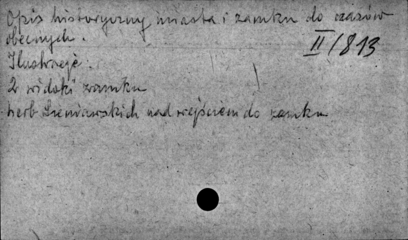 Opis historyczny miasta i zamku do czasów
obecnych.
II/813
Ilustracje.
2 widoki zamku
herb Sieniawskich nad wejściem do zamku